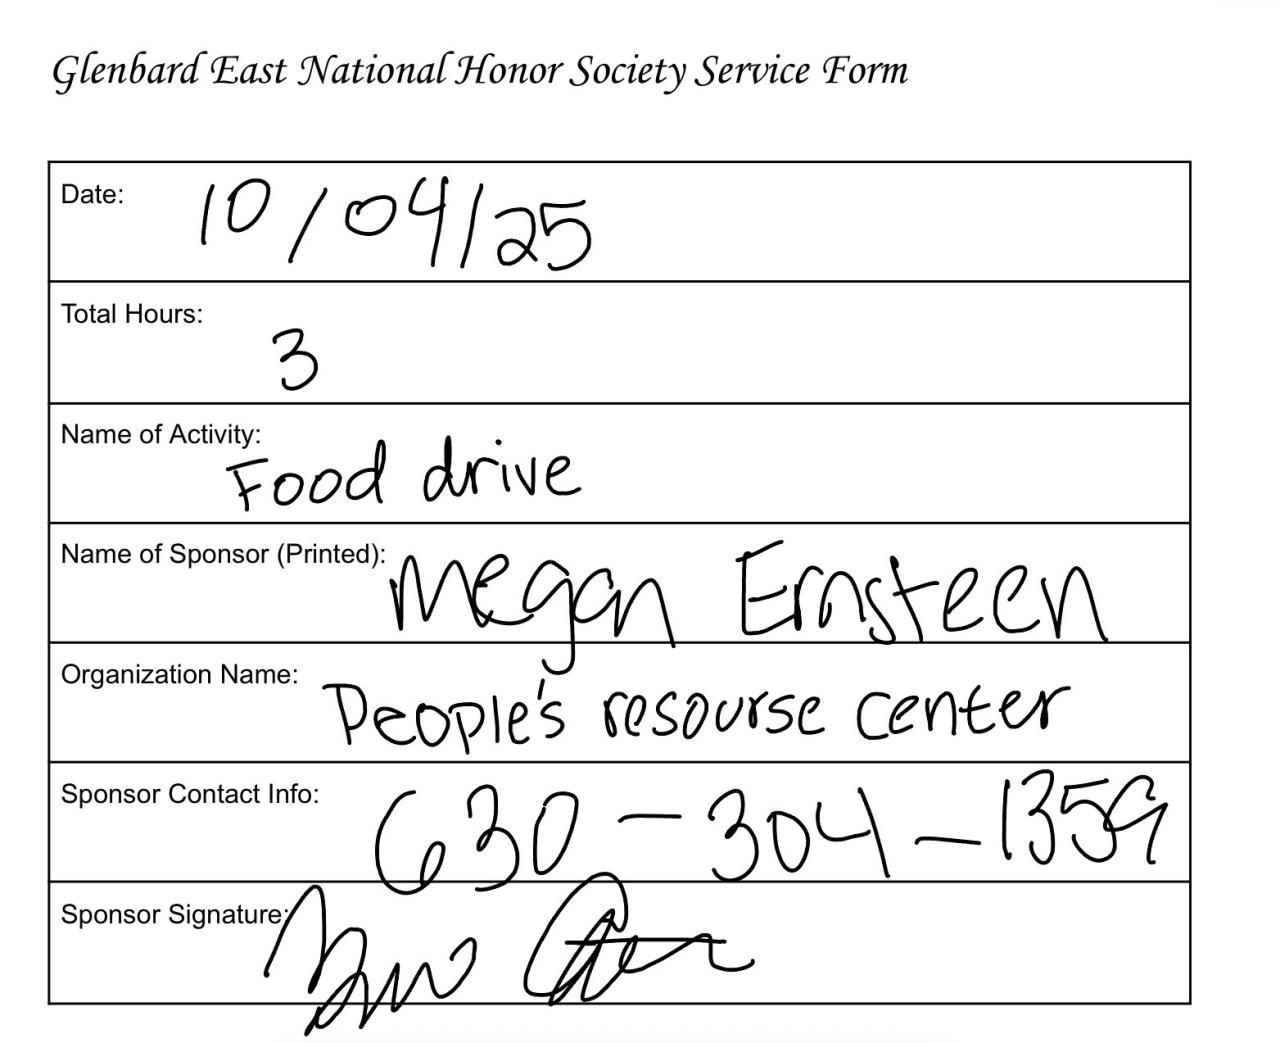 Glenbard East National Honor Society Service Form
Date: 10/04/25
Total Hours: 3
Name of Activity: Food drive
Name of Sponsor (Printed): Megan Ernsteen
Organization Name: People's resourse center
Sponsor Contact Info: 630-304-1359
Sponsor Signature: